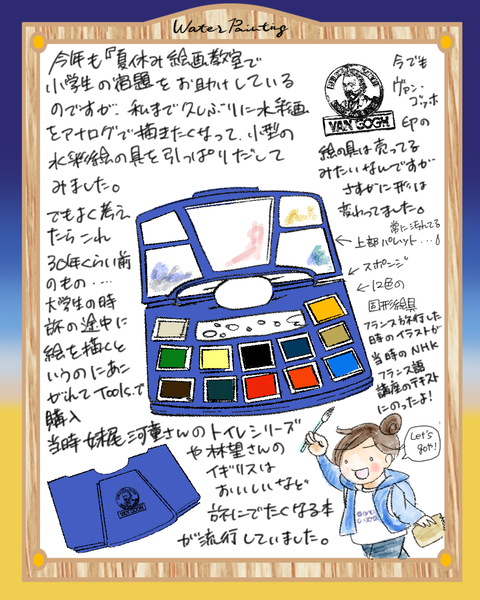 Water Painting
今年も『夏休み絵画教室で
小学生の宿題をお助けしている
のですが、私まで久しぶりに水彩画
をアナログで描きたくなって、小型の
水彩絵の具を引っぱりだして
みました。
でもよく考え
たらこれ
30年くらい前
のもの・・・・
大学生の時
旅の途中に
絵を描くと
いうのにあこ
がれてToolsで
購入
当時 妹尾河童さんのトイレシリーズ
や林望さんの
イギリスは
おいしいなど
旅にでたくなる本
が流行していました。
今でも
ヴァン・
ゴッホ
印の
VAN GOGH
絵の具は売ってる
みたいなんですが
さすがに形は
変わってました。
常に汚れてる
←上部パレット・・・
←スポンジ
←12色の
固形絵具
フランス旅行した
時のイラストが
当時のNHK
フランス語
講座のテキスト
にのったよ!
Let's
go!!
VAN GOGH